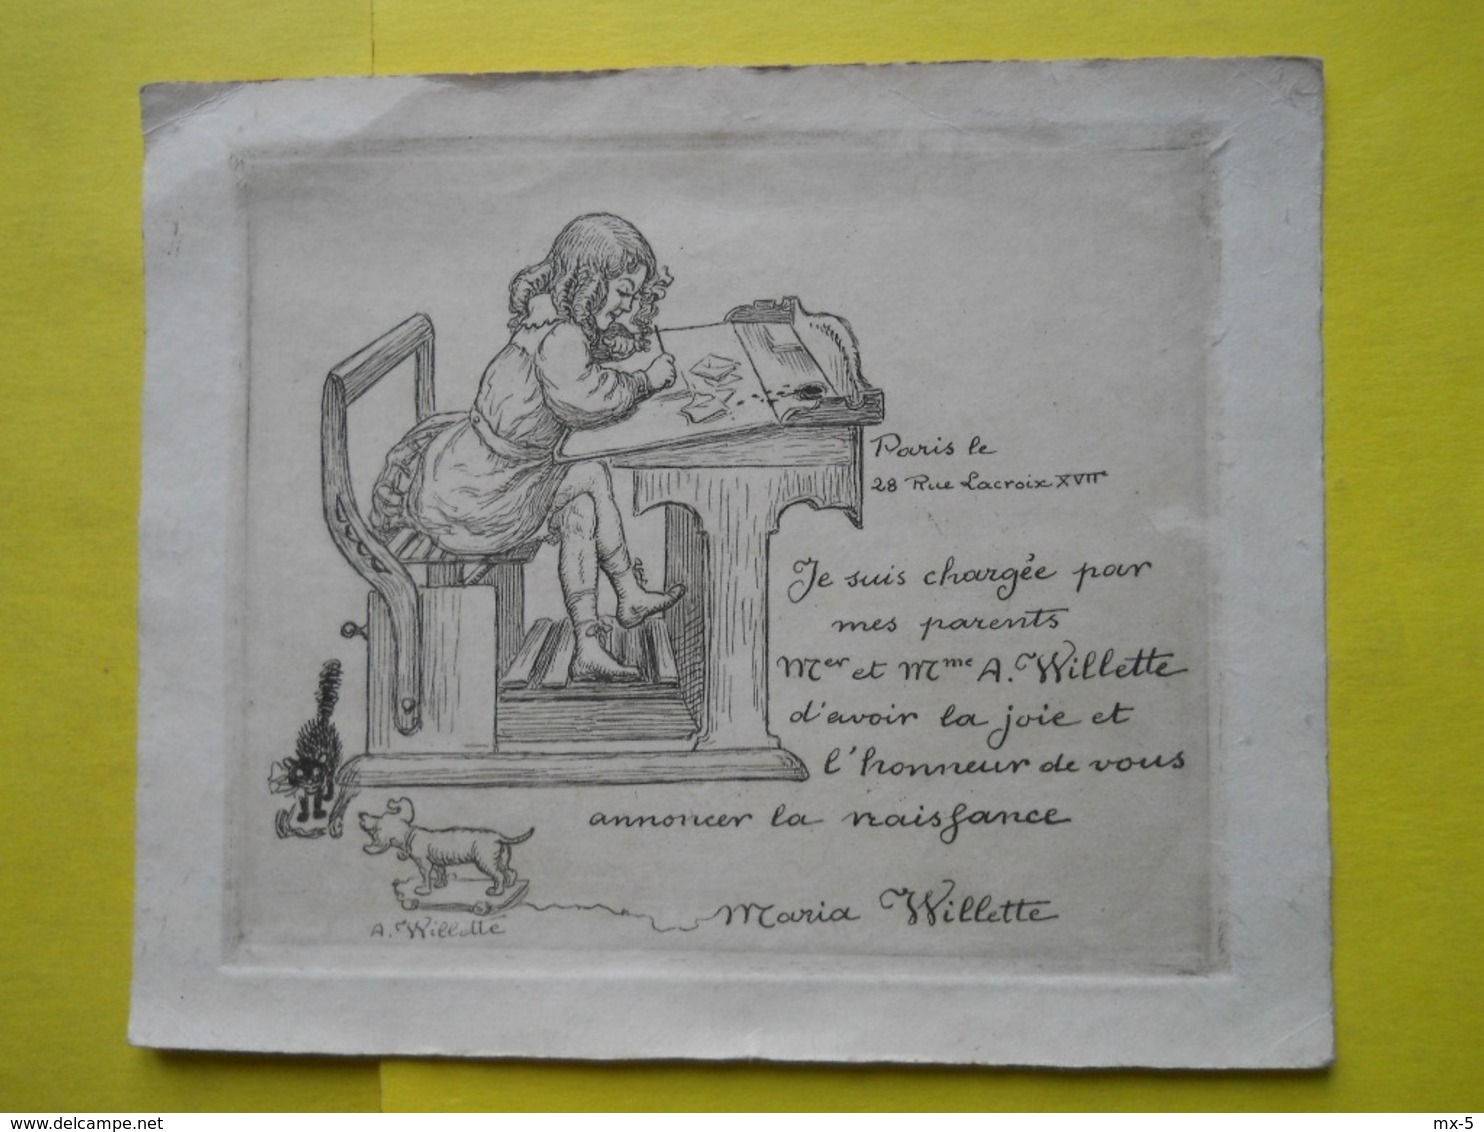 Paris le
28 Rue Lacroix XVIIe
Je suis chargée par
mes parents
Mer et Mme A. Willette
d'avoir la joie et
l'honneur de vous
annoncer la naissance
Maria Willette
A. Willette
delcampe.net
mx-5